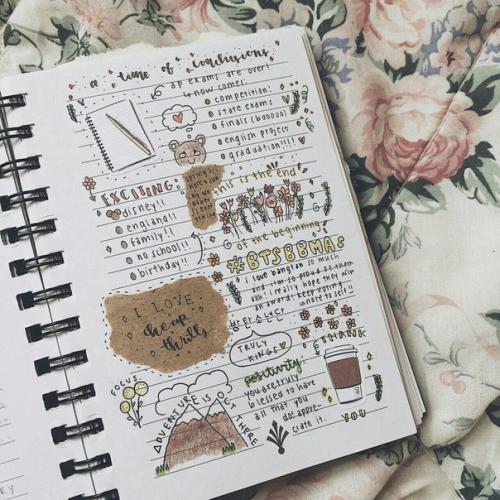 a time of conclusions
ap exams are over!
now comes:
competition!
state exams
finals (booooo)
english project
graduation!!!!
EXCITING
disney!!
england!!
family!!
no school!!
birthday!!
this is the end
of the beginning
#BTSBBMAS
i love bangtan so much
and i'm so proud of them
ahh i really hope they win
an award. keep voting!
I LOVE
cheap
thrills
TRULY
KINGS
THANK
YOU
FOCUS
ADVENTURE IS OUT THERE
positivity
you are truly
blessed to have
all that you
do. appre-
ciate it.